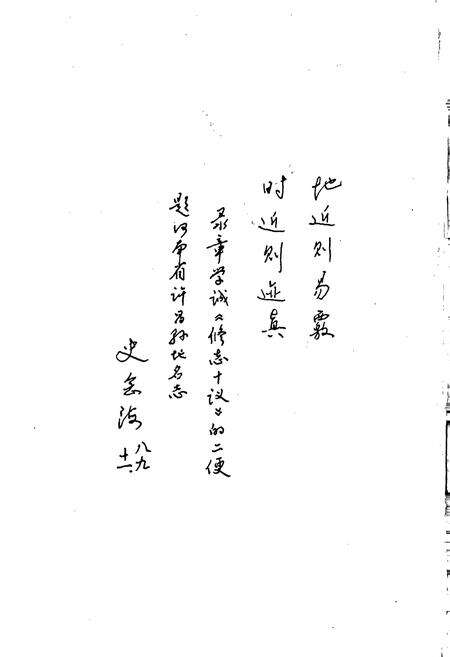 地近则易覈
时近则迹真
录章学诚《修志十议》的二便
题河南省许昌县地名志
史念海
八九
十一